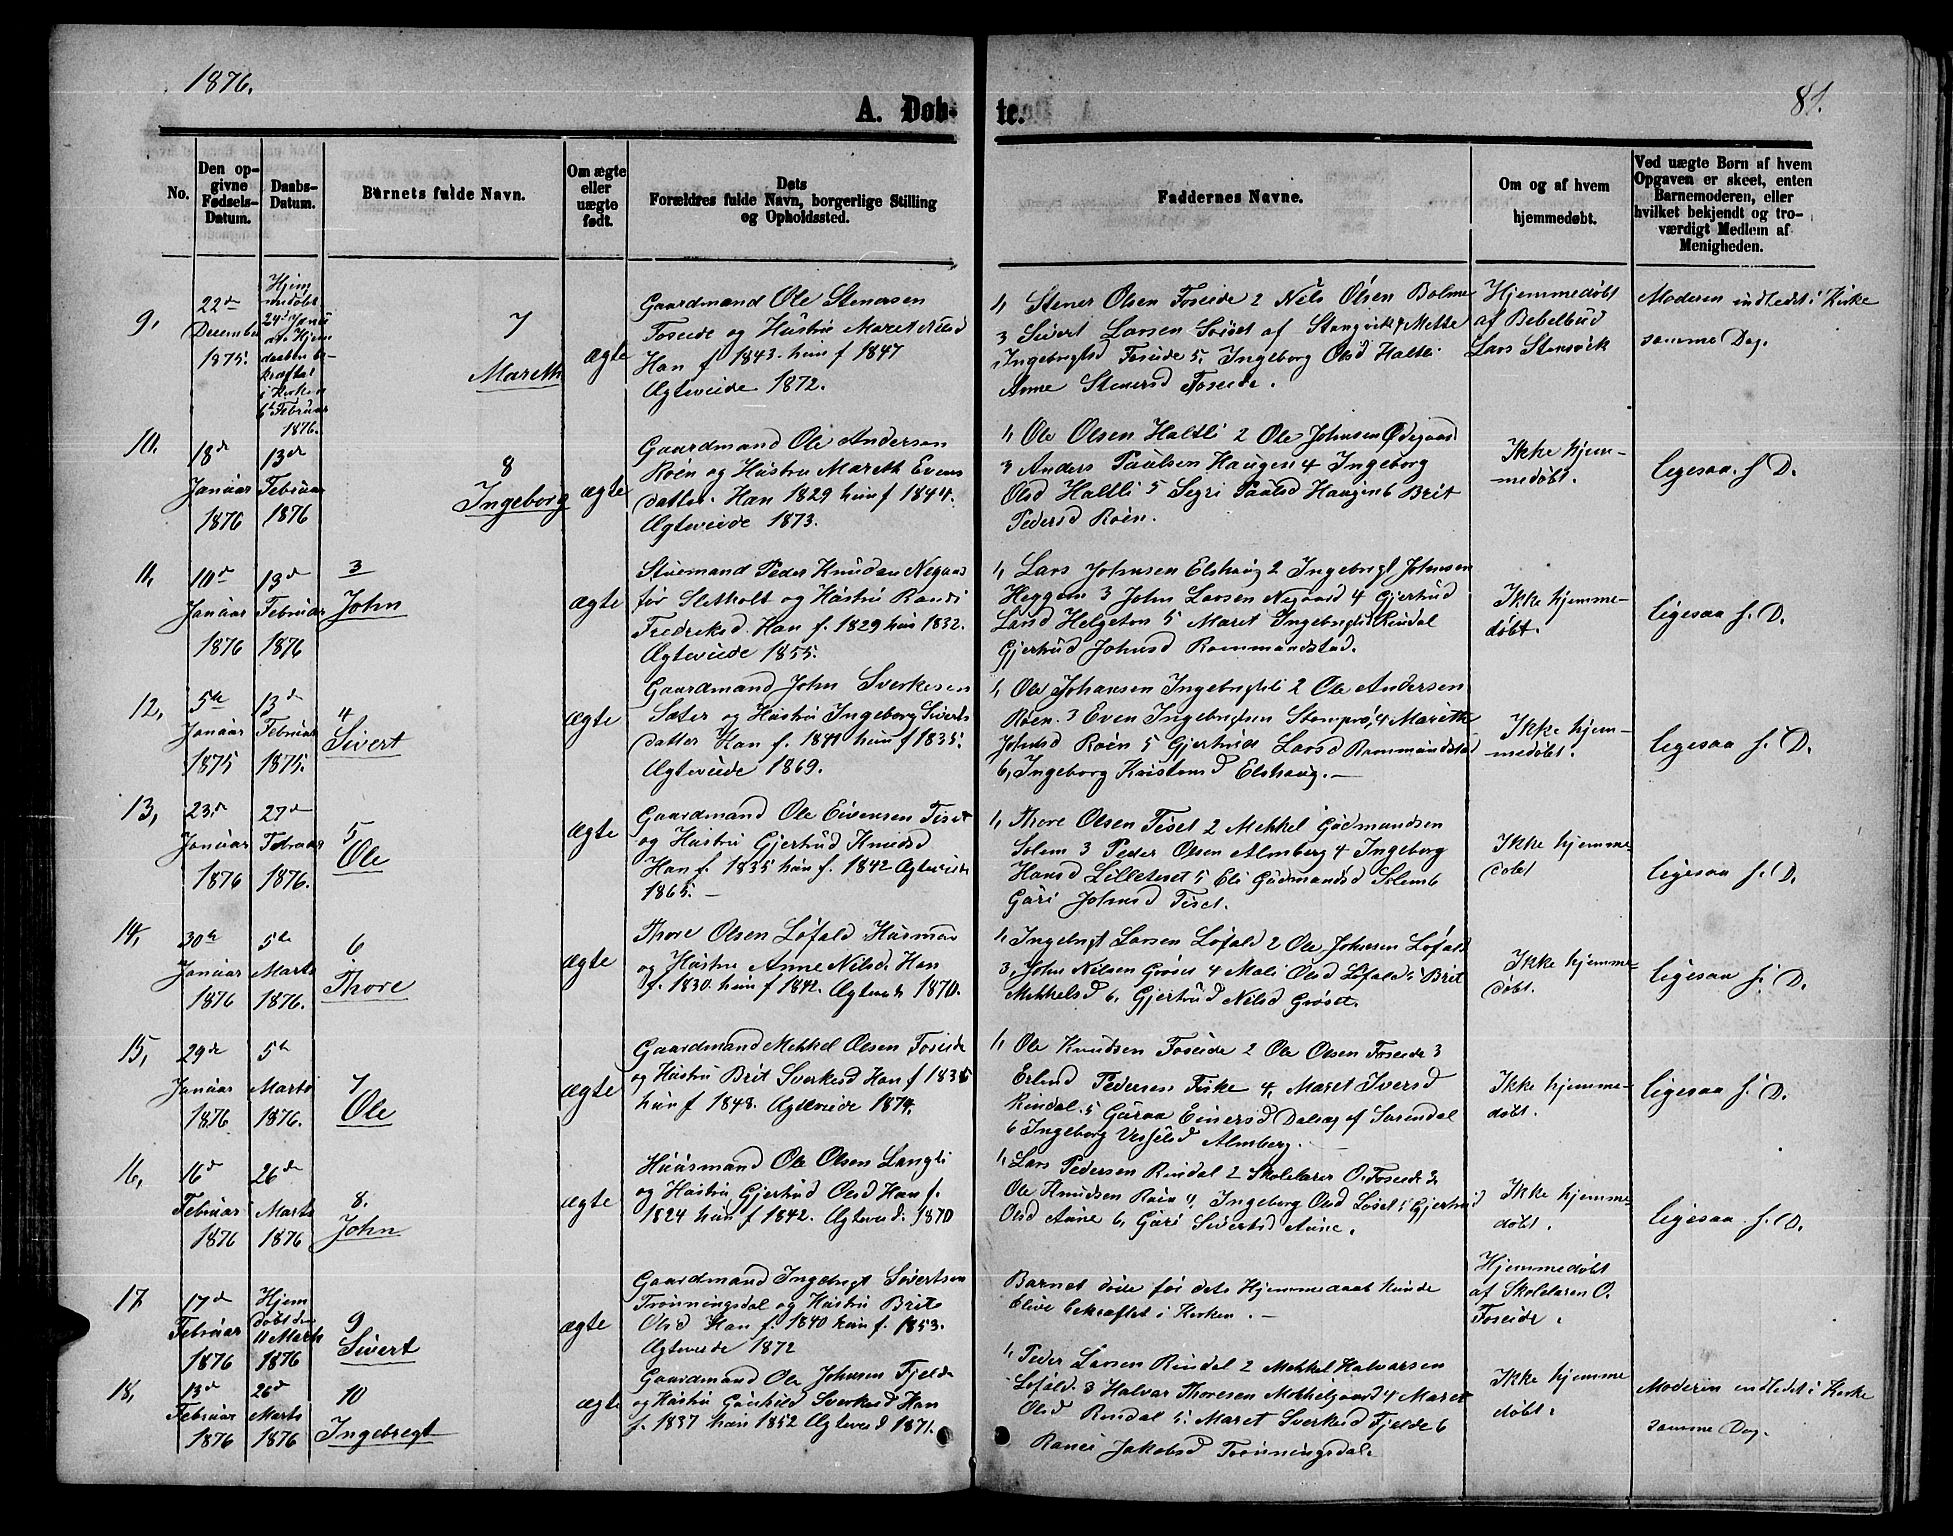 1876.
81.
A. Døb-
te.
No.
Den op-
givne
Fødsels-
Datum.
Daabs-
Datum.
Barnets fulde Navn.
Om ægte
eller
uægte
født.
Dets
Forældres fulde Navn, borgerlige Stilling
og Opholdssted.
Faddernes Navne.
Om og af hvem
hjemmedøbt.
Ved uægte Børn af hvem
Opgaven er skeet, enten
Barnemoderen, eller
hvilket bekjendt og tro-
værdigt Medlem af
Menigheden.
9,
22de
December
1875.
Hjem
medøbt
kræftet
i Kirken
6te Februar
1876.
7
Mareth
ægte
Gaardmand Ole Stenersen
Foseide og Hustru Maret Nilsd
Han f 1843. hun f 1847
Ægteviede 1872.
1, Stener Olsen Foseide 2 Nels Olsen Bolme
3 Sivert Larsen af Stangvik 4 Mette
Ingebrigtsd Foseide 5, Ingeborg Olsd Haltli
Anne Stenersd Foseide.
Hjemmedøbt
af Bebelbud
Lars Stensvik
Moderen indledet i Kirke
samme Dag.
10,
18de
Januar
1876
13de
Februar
1876
8
Ingeborg
ægte
Gaardmand Ole Andersen
Roen og Hustru Mareth Evens
datter. Han 1829 hun f 1844.
Ægteviede 1873.
1, Ole Olsen Haltli 2 Ole Johnsen Ødegaard
3 Anders Paulsen Haugen 4 Ingeborg
Olsd Haltli 5 Segri Paulsd Haugen 6 Brit
Pedersd Roen.
Ikke hjem-
medøbt.
ligesaa s. D.
11,
10de
Januar
1876
13de
Februar
1876
3
John
ægte
Stuemand Peder Knudsen Negaard
før Sletholt og Hustru Randi
Fredriksd. Han f. 1829 hun 1832.
Ægteviede 1855.
1, Lars Johnsen Elshaug 2 Ingebrigt Johnsen
Heggem 3 John Larsen Negaard 4 Gjertrud
Larsd Helgeton 5 Maret Ingebrigtsd Rindal
Gjertrud Johnsd Rommundstad.
Ikke hjemme-
døbt.
ligesaa s. D.
12,
5te
Januar
1875
13de
Februar
1875.
4
Sivert
ægte
Gaardmand John Sverkesen
Sæter og Hustru Ingeborg Siverts
datter Han f. 1841 hun f 1835.
Ægteviede 1869.
1, Ole Johansen Ingebrigtsli 2 Ole Andersen
Roen. 3 Even Ingebrigtsen Stomprø, 4 Marethe
Johnsd Roen 5 Gjertrude Larsd Rommundstad
6, Ingeborg Kristensd Elshaug. —
Ikke hjem-
medøbt.
ligesaa s. D.
13,
23de
Januar
1876
27de
Februar
1876.
5
Ole
ægte
Gaardmand Ole Eivensen Tiset
og Hustru Gjertrud Knudsd
Han f. 1835 hun f. 1842 Ægteviede
1865. —
1, Thore Olsen Tiset 2 Mekkel Gudmundsen
Solem 3 Peder Olsen Almberg 4 Ingeborg
Hansd Lilleteset 5 Eli Gudmundsd Solem 6
Guri Johnsd Tiset.
Ikke hjemme-
døbt
ligesaa s. D.
14,
30te
Januar
1876
5te
Marts
1876.
6
Thore
ægte
Thore Olsen Løfald Husmand
og Hustru Anne Nilsd. Han
f. 1830. hun f 1842. Ægteviede 1870.
1, Ingebrigt Larsen Løfald 2 Ole Johnsen Løfald
3, John Nilsen Grøset 4 Mali Olsd Løfald 5 Brit
Mekkelsd 6, Gjertrud Nilsd Grøset.
Ikke hjemme-
døbt.
ligesaa s. D.
15,
29de
Januar
1876
5te
Marts
1876.
7
Ole
ægte
Gaardmand Mekkel Olsen Foseide
og Hustru Brit Sverkesd Han f 1835
hun f 1848. Ægteviede 1874.
1, Ole Knudsen Foseide 2 Ole Olsen Foseide 3
Erlend Pedersen Fiske 4, Maret Iversd
Rindal. 5 Guraa Einersd Dalsæg af Surendal
6 Ingeborg Vesselsd Almberg.
Ikke hjemme-
døbt.
ligesaa s. D.
16,
16de
Februar
1876
26de
Marts
1876
8.
John
ægte
Huusmand Ole Olsen Langli
og Hustru Gjertrud Olsd Han f.
1824 hun f 1842. Ægteved. 1870
1, Lars Pedersen Rindal 2 Skolelærer O. Foseide 3
Ole Knudsen Roen 4, Ingeborg Olsd Løset 5 Gjertrud
Olsd Aune 6, Guri Sivertsd Aune.
Ikke hjemme-
døbt.
ligesaa s. D.
17
17de
Februar
1876
Hjem
døbt den
11 Marts
1876
9
Sivert
ægte
Gaardmand Ingebrigt Sivertsen
Trønningsdal og Hustru Brit
Olsd Han f. 1840 hun f. 1853.
Ægteviede 1872
Barnet døde før dets Hjemmedaab kunde
blive bekræftet i Kirken. —
Hjemmedøbt
af Skolelæren O.
Foseide.
18,
13de
Februar
1876
26de
Marts
1876
10
Ingebregt
ægte
Gaardmand Ole Johnsen Fjelde
og Hustru Gunhild Sverkesd Han
f. 1837 hun 1852 Ægteved 1871.
1, Peder Larsen Rindal 2 Mekkel Halvorsen
Løfald. 3 Halvar Thoresen Mekkelgaard 4 Maret
Olsd Rindal 5. Maret Sverkesd Fjelde 6
Ranei Jakobsd Trønningsdal.
Ikke hjemme
døbt.
Moderen indledet i Kirke
samme Dag.